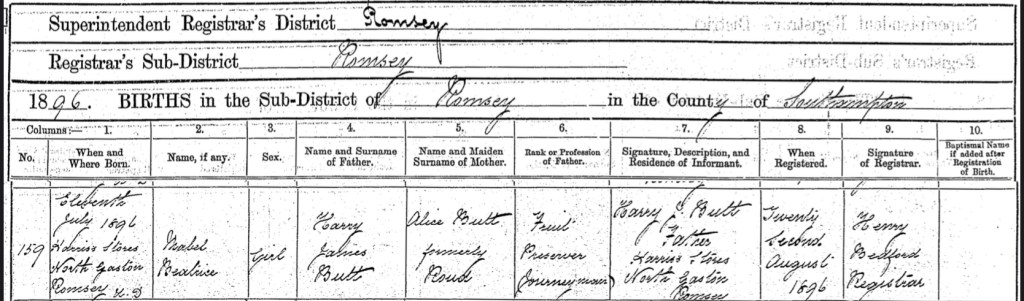 Superintendent Registrar's District Romsey
Registrar's Sub-District Romsey
1896. BIRTHS in the Sub-District of Romsey in the County of Southampton
Columns:— 1. 2. 3. 4. 5. 6. 7. 8. 9. 10.
No. When and Where Born. Name, if any. Sex. Name and Surname of Father. Name and Maiden Surname of Mother. Rank or Profession of Father. Signature, Description, and Residence of Informant. When Registered. Signature of Registrar. Baptismal Name if added after Registration of Birth.
159
Eleventh
July 1896
Harris's Stores
North Gaston
Romsey U.D
Mabel
Beatrice
Girl
Harry
James
Butt
Alice Butt
formerly
Roud
Fruit
Preserver
(Journeyman)
Harry J Butt
Father
Harris's Stores
North Gaston
Romsey
Twenty
Second
August
1896
Henry
Bedford
Registrar